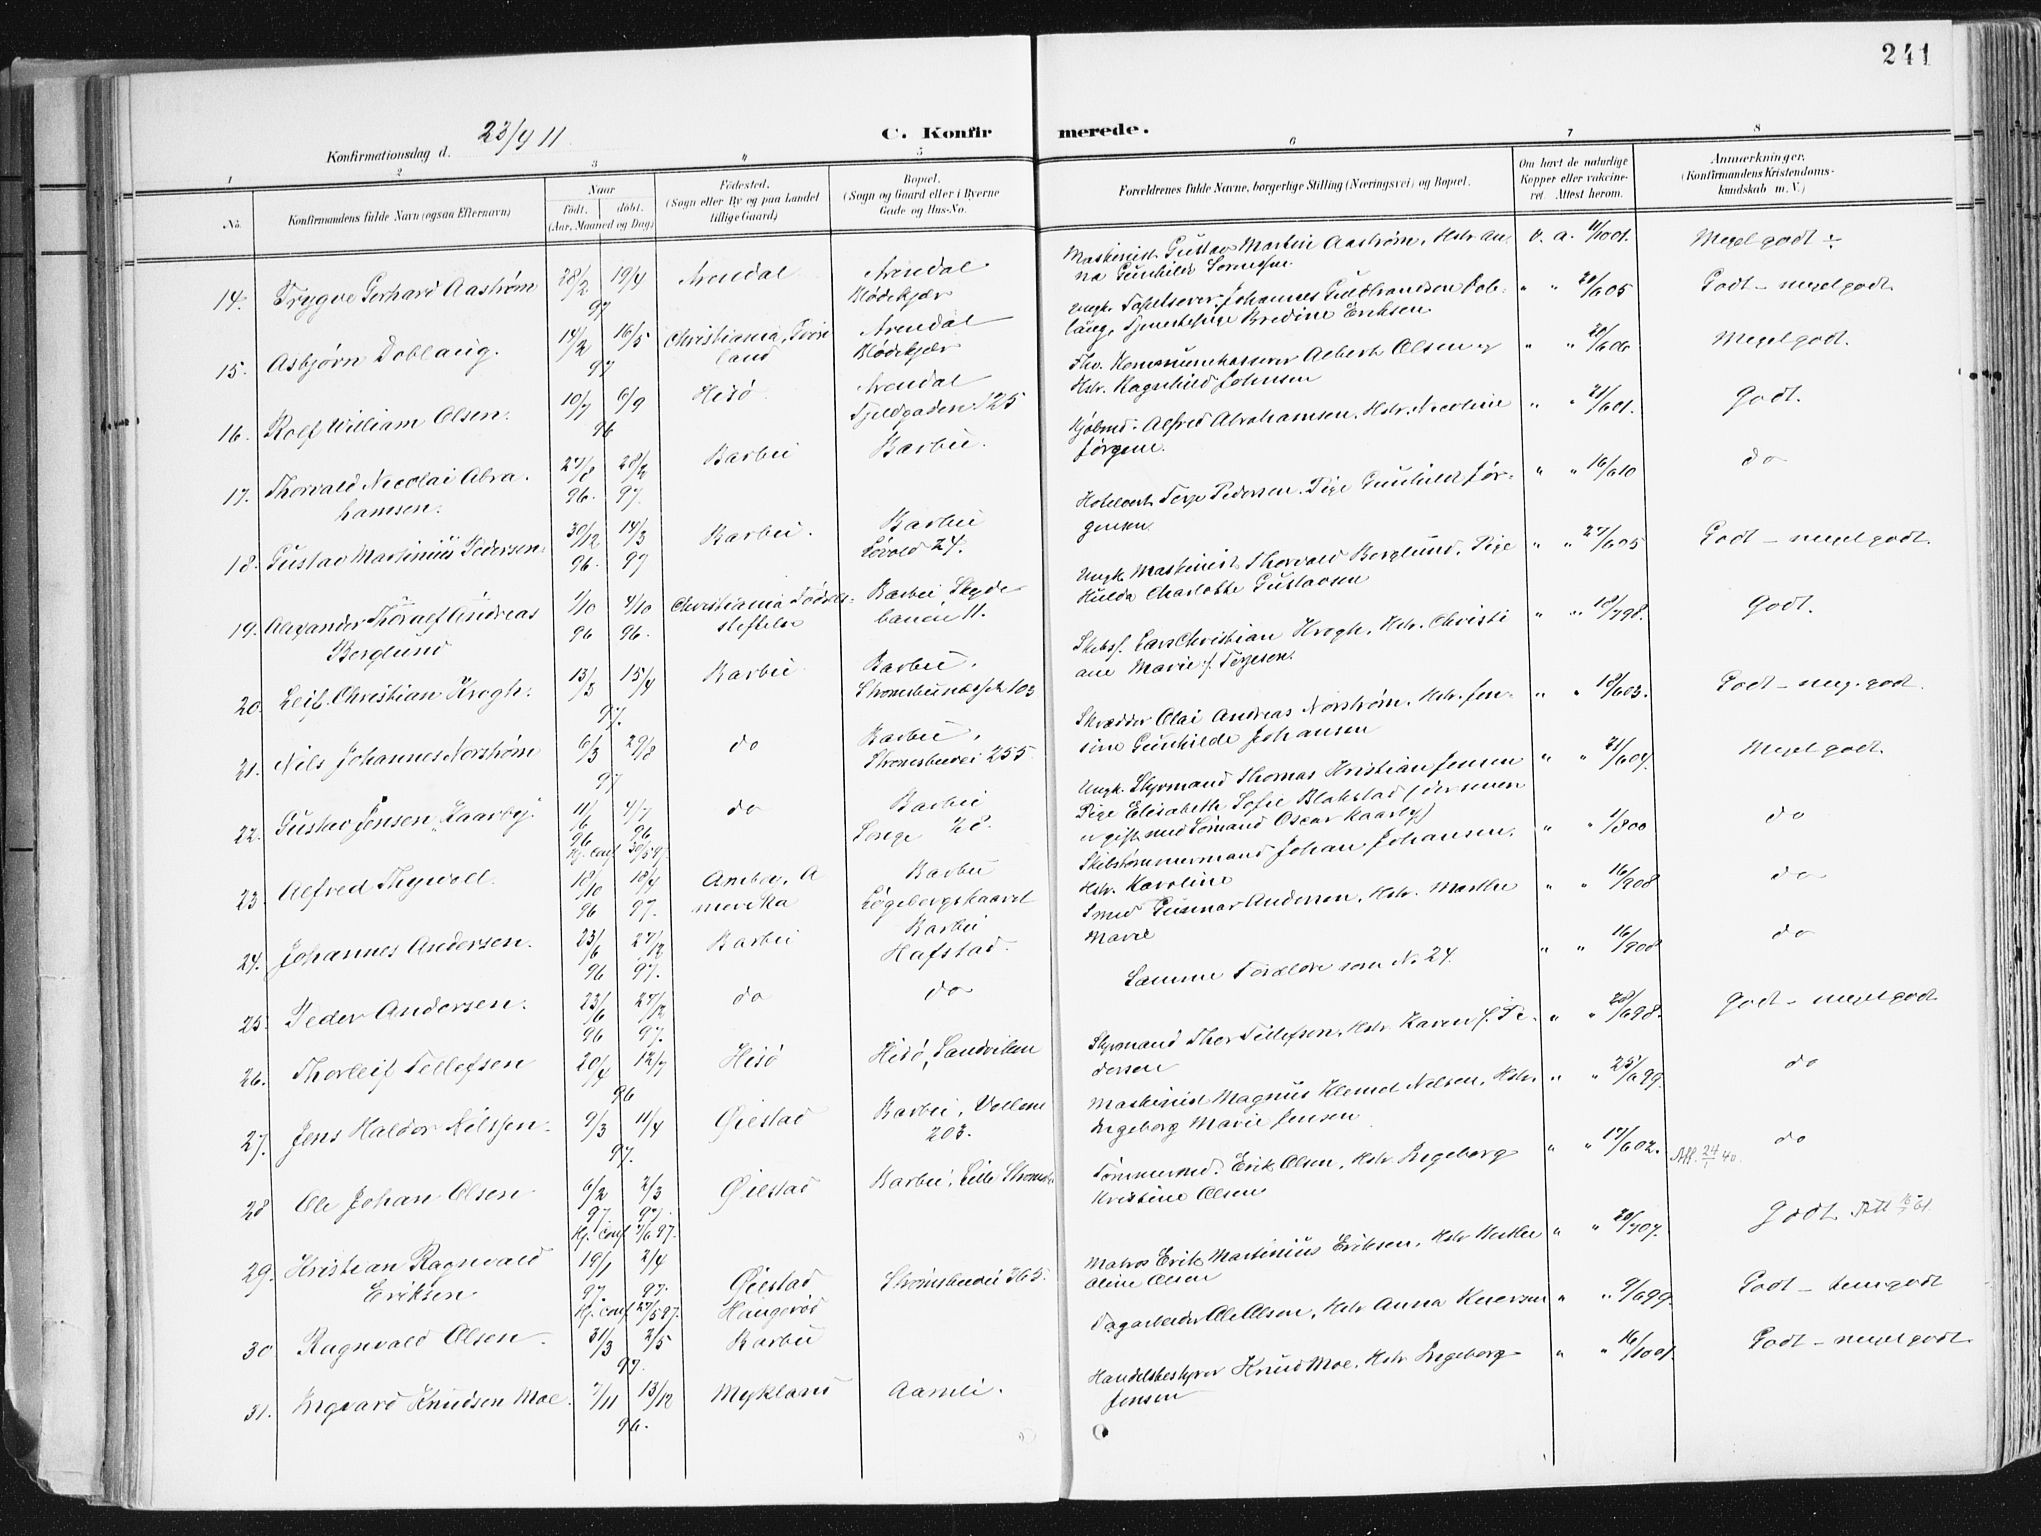 241
Konfirmationsdag d. 23/4 11
C. Konfirmerede.
1 2 3 4 5 6 7 8
No.
Konfirmandens fulde Navn (ogsaa Efternavn)
Naar
født. døbt.
(Aar, Maaned og Dag)
Fødested.
(Sogn eller By og paa Landet tillige Gaard)
Bopæl.
(Sogn og Gaard eller i Byerne Gade og Hus-No.
Forældrenes fulde Navne, borgerlige Stilling (Næringsvei) og Bopæl.
Om havt de naturlige Kopper eller vakcineret. Attest herom.
Anmærkninger.
(Konfirmandens Kristendomskundskab m. V.)
14. Trygve Gerhard Aastrøm 28/2 19/4 97 Arendal Arendal Blødekjær Maskinist Gustav Martin Aastrøm, Hstr. Anna Gunhild v. a. Meget godt
15. Asbjørn Doblaug. 14/2 16/5 97 Christiania, Arendal Blødekjær Ungk. Johannes Guldbrandsen Doblaug, Bredine Eriksen " " 20/6 05 Godt - meget godt
16. Rolf William Olsen. 10/7 6/9 96 Hisø Arendal Fjeldgaden 125 Fhv. Kommunekasserer Albert Olsen og Hstr. Ragnhild Johnsen " " 20/6 06 Meget godt.
17. Thorvald Nicolai Abrahamsen. 27/8 96. 28/2 97. Barbu Barbu. Kjøbmd. Alfred Abrahamsen, Hstr. Nicoline Jørgine. " " 21/6 01. Godt.
18. Gustav Martinius Pedersen. 30/12 96. 14/3 97 Barbu. Barbu 24. Terje Pedersen. Pige Gunhild Jørgensen " " 16/6 10 do
19. Alexander Thoralf Andreas Berglund 1/10 96 4/10 96. Christiania Fødselsstiftelse Barbu Skydebanen 11. Ungk. Maskinist Thorvald Berglund, Pige Hulda Charlotte Gustavsen " " 27/6 05 Godt - meget godt.
20. Leif Christian Krogh. 13/3 15/4 97. Barbu Barbu. 103 Skibsf. Lars Christian Krogh, Hstr. Christiane Marie f. Terjesen. " " 18/7 98. Godt.
21. Nils Johannes Norstrøm 6/3 29/8 97 do Barbu, Strømsbuvei 255 Skrædder Olai Andreas Norstrøm, Hstr. Jensine Gunhilde Johansen " " 18/6 03. Godt - meg. godt.
22. Gustav Jensen "Kaarby" 11/6 96 4/7 96 Hj. conf. 30/5 97. do Barbu 28. Ungk. Styrmand Thomas Kristian Jensen Pige Elisabeth Sofie Blakstad (der nu er gift med Sømand Oscar Kaarby) " " 21/6 04. Meget godt.
23. Alfred Thywold. 18/10 96 18/4 97. Amboy, Amerika Barbu Løgebergskaaret Skibstømmermand Johan Johansen, Hstr. Karoline " " 1/8 00 do
24. Johannes Andersen. 23/6 96 27/12 97. Barbu Barbu Hafstad Smed Gunnar Andersen, Hstr. Marthe Marie " " 16/9 08 do
25. Peder Andersen. 23/6 96 27/12 97. do do Samme Forældre som No. 24. " " 16/9 08 do
26. Thorleif Tellefsen 20/4 12/7 96 Hisø Hisø, Sandviken Styrmand Thor Tellefsen, Hstr Karen f. Pedersen " " 28/6 98. Godt - meget godt
27. Jens Haldor Nilssen. 9/3 11/4 97. Øiestad Barbu, Vollene 203. Maskinist Magnus Klemet Nelsen, Hstr Ingeborg Marie Jensen " " 25/6 99 do
28 Ole Johan Olsen 6/2 97. 2/3 97. Hj. conf 7/6 97. Øiestad Barbu, Lille Tømmermd. Erik Olsen, Hstr Ingeborg Kristine Olsen " " 17/6 02. Att. 24/1 40. do
29. Kristian Ragnvald Eriksen 19/1 97. 2/4 97. Hj. conf 27/5 97. Øiestad Haugerød Strømsbuvei 365. Matros Erik Martinius Eriksen, Hstr Aline Olsen " " 20/7 07. Godt
30. Ragnvald Olsen 31/3 2/5 97. Barbu Dagarbeider Ole Olsen, Hstr Anna " " 9/6 99. Godt - temgodt
31. Ingvard Knudsen Moe. 7/11 13/12 96. Mykland Aamli. Handelsbestyrer Knud Moe, Hstr Ingeborg Jensen " " 16/10 01. Godt - meget godt